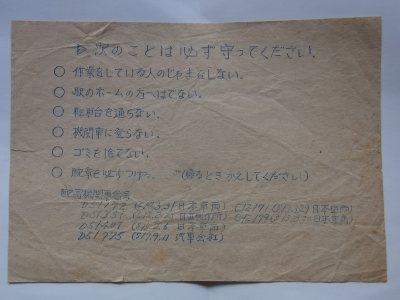 ▷ 次のことは必ず守ってください.
○ 作業をしている人のじゃまをしない.
○ 駅のホームの方へはでない.
○ 転車台を通らない.
○ 機関車に登らない.
○ ゴミを捨てない.
○ 腕章を必ずつける. (帰るときかえしてください)
配置機関車番号
日本車両) C12171 (S13.3.29 日本車両)
D51351
D51 日本車両)
D51775 (S17.9. 汽車会社)